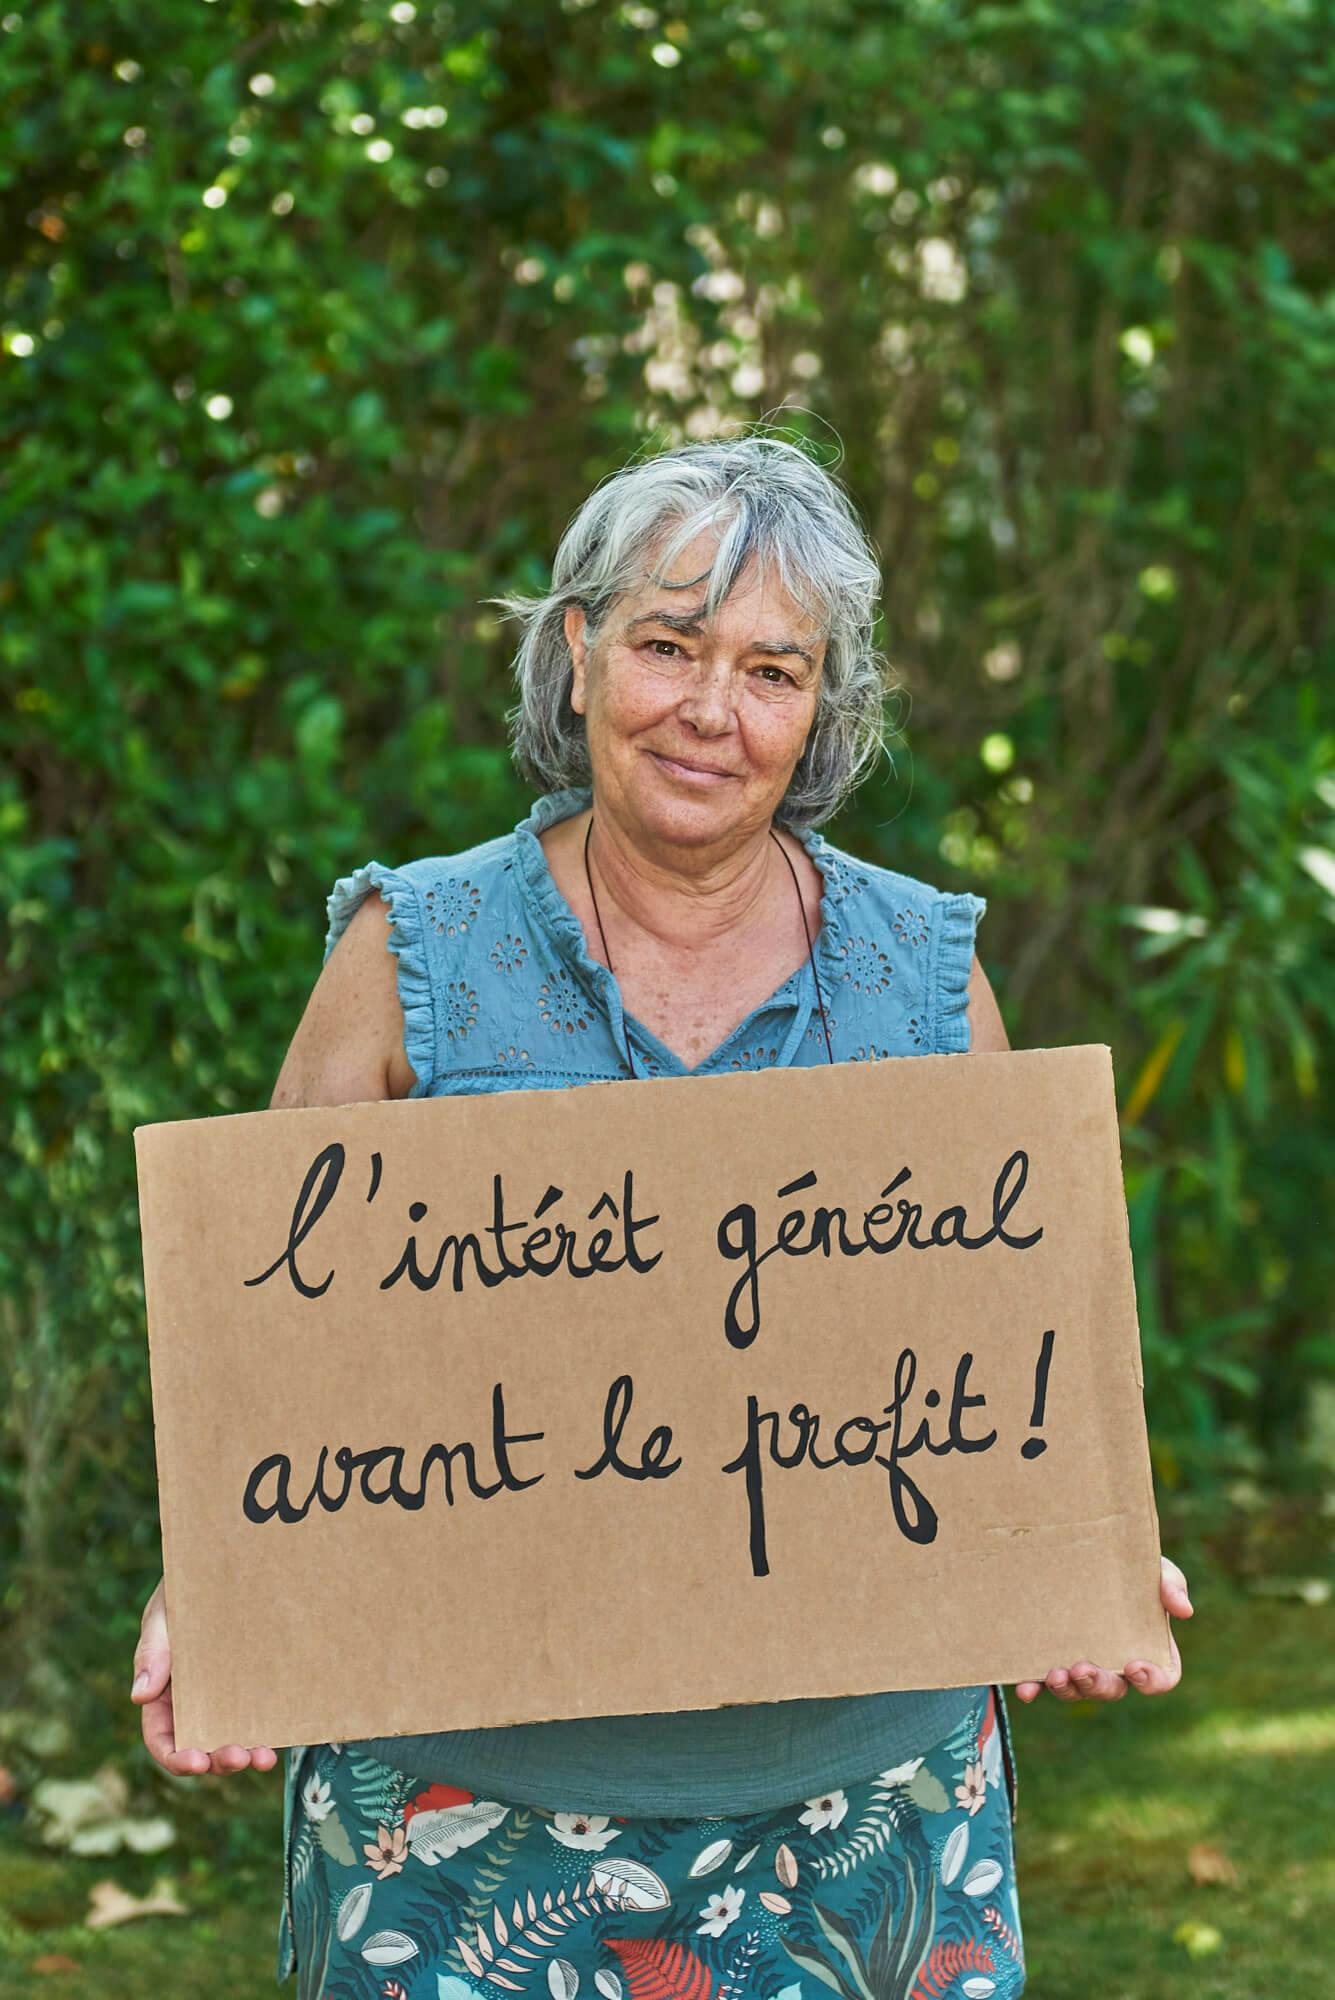 l'intérêt général
avant le profit !